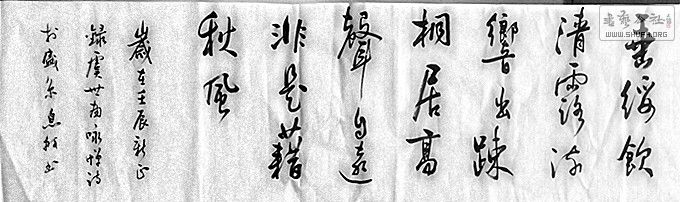 書藝公社
WWW.SHUFA.ORG
垂綏飲
清露流
響出踈
桐居高
聲自遠
非是藉
秋風
歲在壬辰新正
錄虞世南咏蟬詩
於盛京